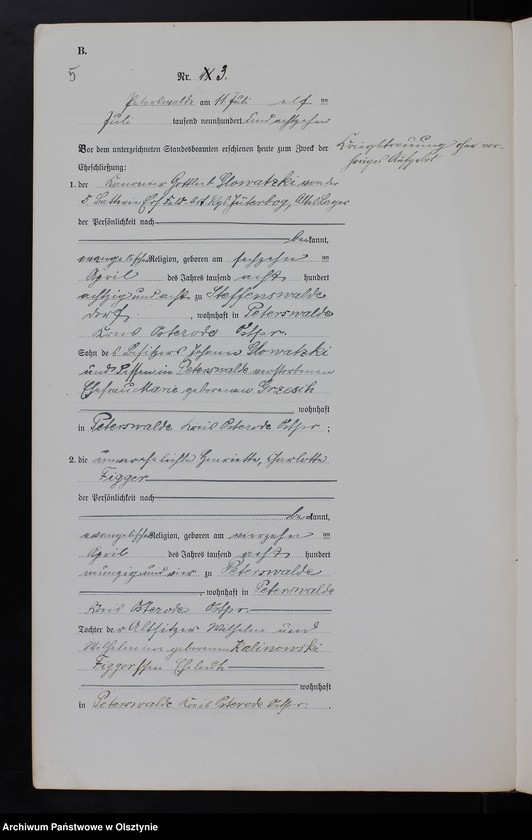 B.
5
Nr. 3.
Peterswalde am 11. Juli elf ten
Juli tausend neunhundert und achtzehn
Kriegstrauung ohne vor-
heriges Aufgebot
Vor dem unterzeichneten Standesbeamten erschienen heute zum Zweck der
Eheschließung:
1. der Kanonier Gottlieb Glowatzki von der
5. Batterie Jüterbog, Altes Lager
der Persönlichkeit nach
bekannt,
evangelischer Religion, geboren am sechzehn ten
April des Jahres tausend acht hundert
achtzig und acht zu Steffenswalde
dorf, wohnhaft in Peterswalde
Kreis Osterode Ostpr.
Sohn des Besitzers Johann Glowatzki
und dessen in Peterswalde verstorbenen
Ehefrau Marie geborenen Grzesik
wohnhaft
in Peterswalde Kreis Osterode Ostpr. ;
2. die unverehelichte Henriette, Charlotte
Figger
der Persönlichkeit nach
bekannt,
evangelischer Religion, geboren am vierzehn ten
April des Jahres tausend acht hundert
neunzig und vier zu Peterswalde
, wohnhaft in Peterswalde
Kreis Osterode Ostpr.
Tochter der Altsitzer Wilhelm und
Wilhelmine geborenen Kalinowski
Figgerschen Eheleute
wohnhaft
in Peterswalde Kreis Osterode Ostpr. .
Archiwum Państwowe w Olsztynie